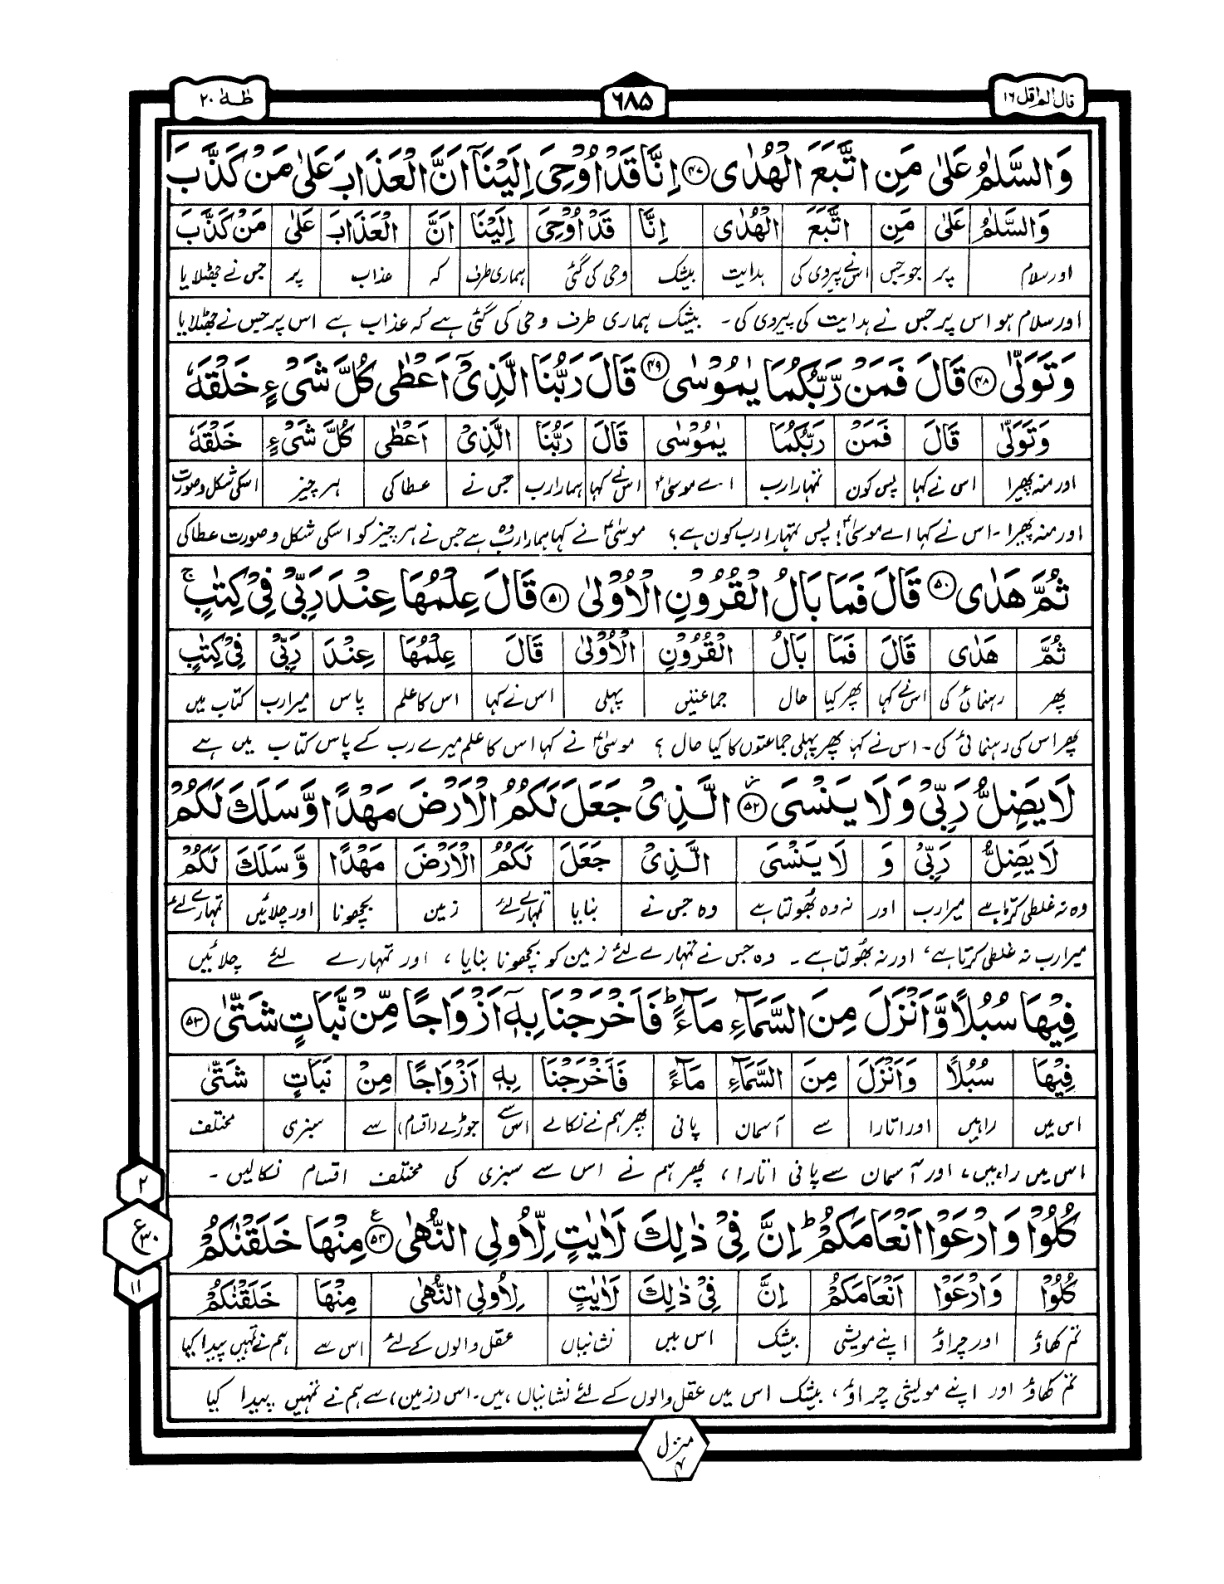 قال الم اقل ۱۶
۶۸۵
طٰهٰ ۲۰
وَالسَّلٰمُ عَلٰى مَنِ اتَّبَعَ الْهُدٰى ۴۷ اِنَّا قَدْ اُوْحِىَ اِلَيْنَآ اَنَّ الْعَذَابَ عَلٰى مَنْ كَذَّبَ
وَالسَّلٰمُ عَلٰى مَنِ اتَّبَعَ الْهُدٰى اِنَّا قَدْ اُوْحِىَ اِلَيْنَا اَنَّ الْعَذَابَ عَلٰى مَنْ كَذَّبَ
اور سلام پر جو جس اس نے پیروی کی ہدایت بیشک وحی کی گئی ہماری طرف کہ عذاب پر جس نے جھٹلایا
اور سلام ہو اس پر جس نے ہدایت کی پیروی کی۔ بیشک ہماری طرف وحی کی گئی ہے کہ عذاب ہے اس پر جس نے جھٹلایا
وَتَوَلّٰى ۴۸ قَالَ فَمَنْ رَّبُّكُمَا يٰمُوْسٰى ۴۹ قَالَ رَبُّنَا الَّذِىْٓ اَعْطٰى كُلَّ شَىْءٍ خَلْقَهٗ
وَتَوَلّٰى قَالَ فَمَنْ رَبُّكُمَا يٰمُوْسٰى قَالَ رَبُّنَا الَّذِىْ اَعْطٰى كُلَّ شَىْءٍ خَلْقَهٗ
اور منہ پھیرا اس نے کہا پس کون تمہارا رب اے موسیٰؑ اس نے کہا ہمارا رب جس نے عطا کی ہر چیز اسکی شکل و صورت
اور منہ پھیرا۔ اس نے کہا اے موسیٰؑ! پس تمہارا رب کون ہے؟ موسیٰؑ نے کہا ہمارا رب وہ ہے جس نے ہر چیز کو اسکی شکل و صورت عطا کی
ثُمَّ هَدٰى ۵۰ قَالَ فَمَا بَالُ الْقُرُوْنِ الْاُوْلٰى ۵۱ قَالَ عِلْمُهَا عِنْدَ رَبِّىْ فِىْ كِتٰبٍ ۚ
ثُمَّ هَدٰى قَالَ فَمَا بَالُ الْقُرُوْنِ الْاُوْلٰى قَالَ عِلْمُهَا عِنْدَ رَبِّىْ فِىْ كِتٰبٍ
پھر رہنمائی کی اس نے کہا پھر کیا حال جماعتیں پہلی اس نے کہا اس کا علم پاس میرا رب کتاب میں
پھر اس کی رہنمائی کی۔ اس نے کہا پھر پہلی جماعتوں کا کیا حال؟ موسیٰؑ نے کہا اس کا علم میرے رب کے پاس کتاب میں ہے
لَا يَضِلُّ رَبِّىْ وَلَا يَنْسَى ۵۲ الَّذِىْ جَعَلَ لَكُمُ الْاَرْضَ مَهْدًا وَّسَلَكَ لَكُمْ
لَا يَضِلُّ رَبِّىْ وَ لَا يَنْسَى الَّذِىْ جَعَلَ لَكُمُ الْاَرْضَ مَهْدًا وَّسَلَكَ لَكُمْ
وہ نہ غلطی کرتا ہے میرا رب اور نہ وہ بھولتا ہے وہ جس نے بنایا تمہارے لئے زمین بچھونا اور چلائیں تمہارے لئے
میرا رب نہ غلطی کرتا ہے، اور نہ بھولتا ہے۔ وہ جس نے تمہارے لئے زمین کو بچھونا بنایا، اور تمہارے لئے چلائیں
فِيْهَا سُبُلًا وَّاَنْزَلَ مِنَ السَّمَآءِ مَآءً ؕ فَاَخْرَجْنَا بِهٖٓ اَزْوَاجًا مِّنْ نَّبَاتٍ شَتّٰى ۵۳
فِيْهَا سُبُلًا وَاَنْزَلَ مِنَ السَّمَآءِ مَآءً فَاَخْرَجْنَا بِهٖ اَزْوَاجًا مِنْ نَبَاتٍ شَتّٰى
اس میں راہیں اور اتارا سے آسمان پانی پھر ہم نے نکالے اس سے جوڑے (اقسام) سے سبزی مختلف
اس میں راہیں، اور آسمان سے پانی اتارا، پھر ہم نے اس سے سبزی کی مختلف اقسام نکالیں۔
كُلُوْا وَارْعَوْا اَنْعَامَكُمْ ؕ اِنَّ فِىْ ذٰلِكَ لَاٰيٰتٍ لِّاُولِى النُّهٰى ۵۴ ع مِنْهَا خَلَقْنٰكُمْ
كُلُوْا وَارْعَوْا اَنْعَامَكُمْ اِنَّ فِىْ ذٰلِكَ لَاٰيٰتٍ لِاُولِى النُّهٰى مِنْهَا خَلَقْنٰكُمْ
تم کھاؤ اور چراؤ اپنے مویشی بیشک اس میں نشانیاں عقل والوں کے لئے اس سے ہم نے تمہیں پیدا کیا
تم کھاؤ اور اپنے مویشی چراؤ، بیشک اس میں عقل والوں کے لئے نشانیاں ہیں۔ اس (زمین) سے ہم نے تمہیں پیدا کیا
۲
ع ۳۰
۱۱
منزل ۴